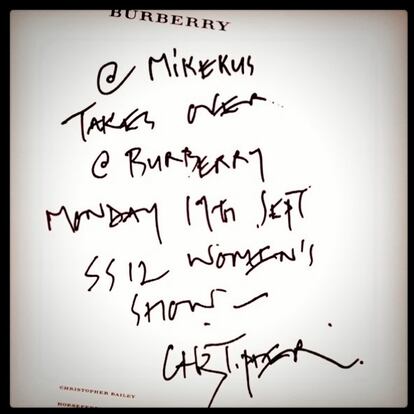 BURBERRY
@ MIKEKUS
TAKES OVER
@ BURBERRY
MONDAY 19th SEPT
SS12 WOMEN'S
SHOW –
CHRISTOPHER BAILEY